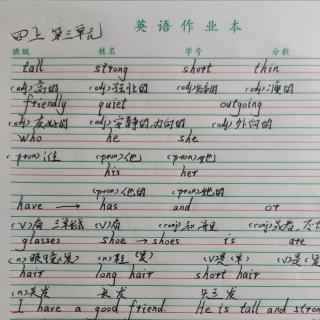 英语作业本
四上 第三单元
班级 姓名 学号 分数
tall strong short thin
(adj)高的 (adj)强壮的 (adj)矮的 (adj)瘦的
friendly quiet outgoing
(adj)友好的 (adj)安静的,内向的 (adj)外向的
who he she
(pron)谁 (pron)他 (pron)她
his her
(pron)他的 (pron)她的
have → has and or
(v)有 三单 (v)有 (conj)和 (conj)或者
glasses shoe → shoes is are
(n)眼镜(复) (n)鞋(复) (v)是(单) (v)是(复
hair long hair short hair
(n)头发 长发 短发
I have a good friend. He is tall and strong